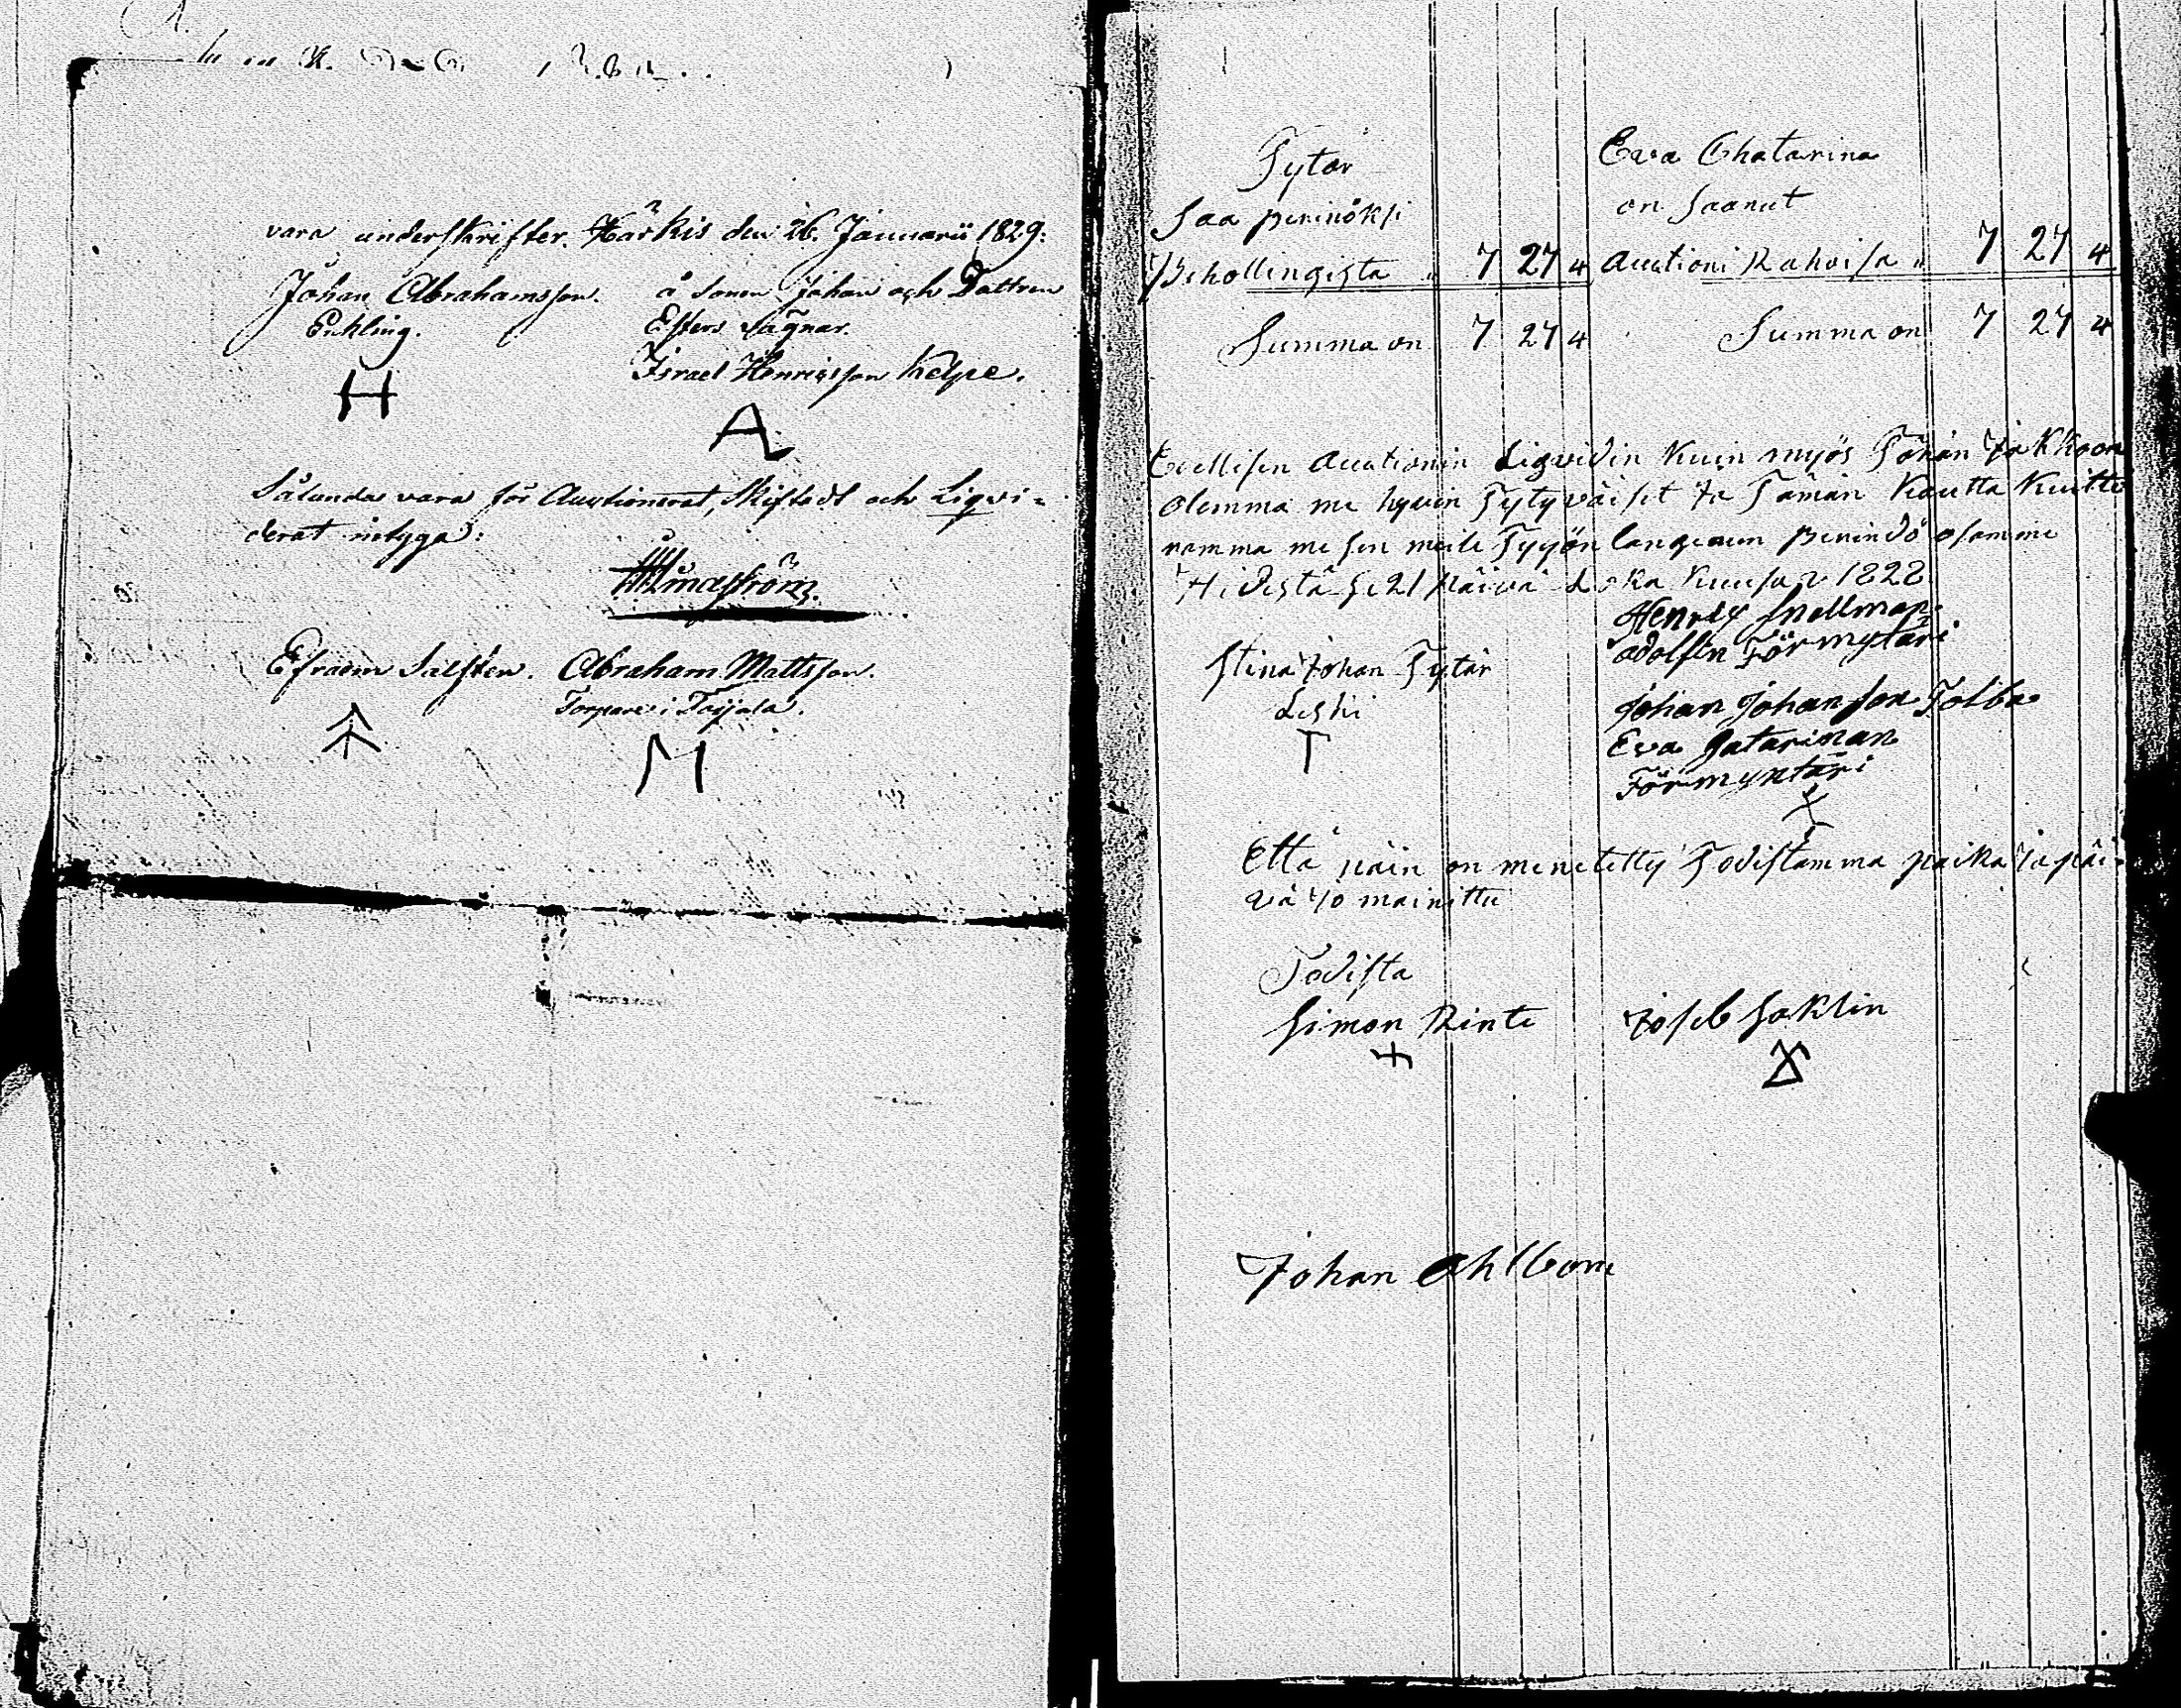 vara underskrifter. Härkis den 26. Januarii 1829:
Johan Abrahamsson.
Enkling.
H
å Sonen Johan och Dottren
Esters vägnar.
Israel Henricsson Kelpe.
A
Sålunda vara för Auctionerat, Skiftadt och Liqvi=
derat intyga:
Lindström.
Efraem Salsten. Abraham Mattsson.
Torpare i Toijala.
M
Tytär
Saa perinöksi
7 27 4
Summa on 7 27 4
Eva Chatarina
on Saanut
Auctioni Rahoisa " 7 27 4
Summa on 7 27 4
Edellisen Auctionin Liqvidin Kuin myös Tähän Jakhoon
olemma me hyvin Tytyväiset Ja Tämän Kautta Kuitte
ramma me sen meile Tyyön langenen perindö osamme
se 21 päivä Loka Kuusa 1828
Stina Johan Tytär
Leski
T
Henrix Snellman
adolfin Förmyntäri
Johan Johansson Tolba
Eva Gatarinan
Förmyntäri
X
Että näin on menetetty Todistamma paika Ja päi=
vä Jo mainittu
Todista
Simon Rinte
Joseb Saklin
Johan Ahlbom